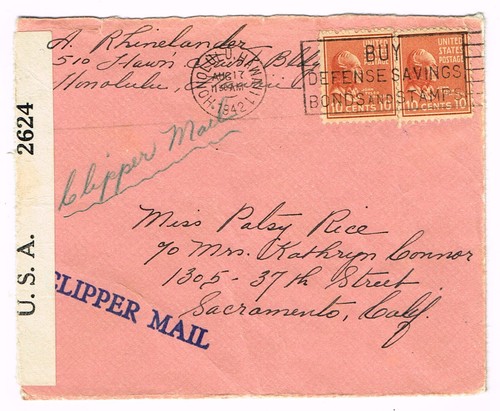 A. Rhinelander
510 Hawn Bldg
Honolulu,
HONOLULU HAWAII
AUG 17
11 AM
1942
BUY
DEFENSE SAVINGS
BONDS AND STAMPS
UNITED STATES POSTAGE
10 CENTS 10
10 CENTS 10
Clipper Mail
U.S.A. 2624
Miss Patsy Rice
c/o Mrs. Kathryn Connor
1305 - 37th Street
Sacramento, Calif.
CLIPPER MAIL